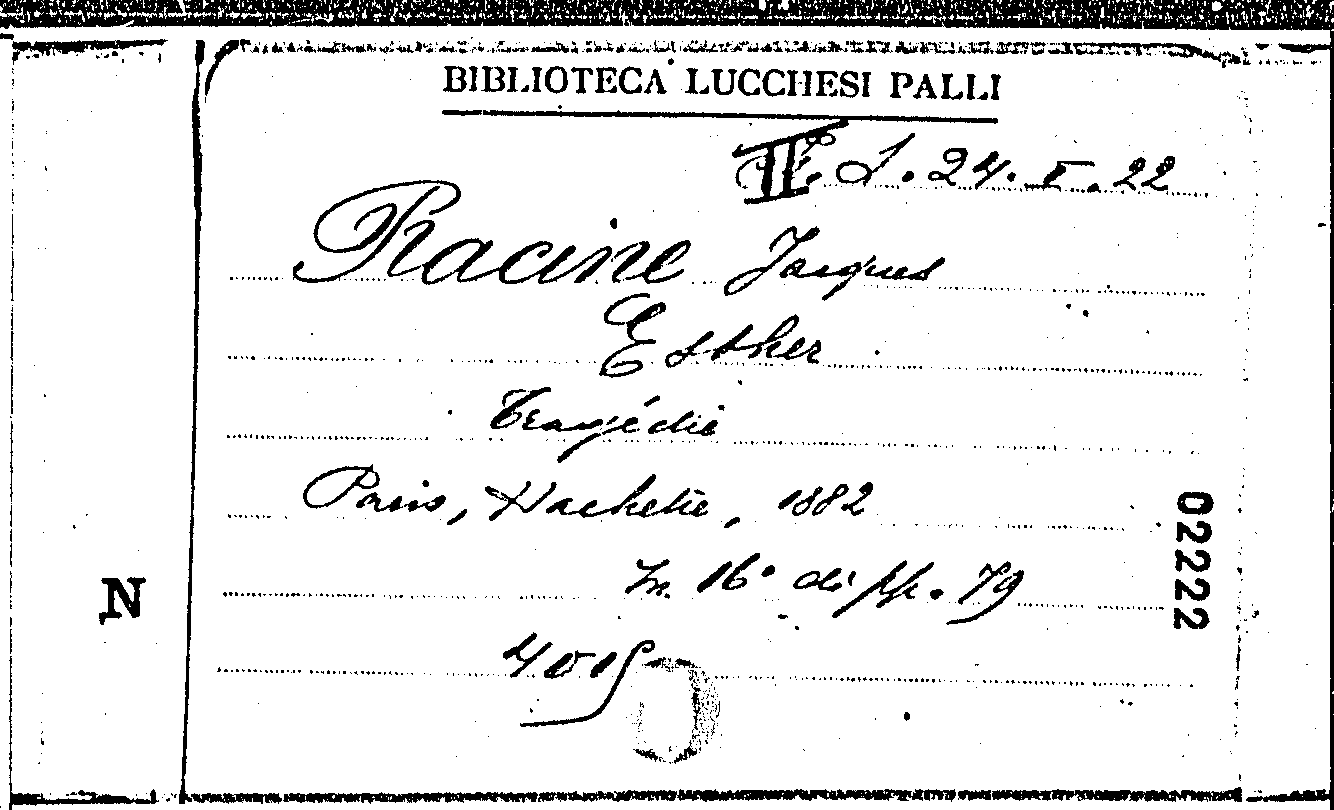 BIBLIOTECA LUCCHESI PALLI
II. L. 24. V. 22
Racine Jacques
Esther
Tragédie
Paris, Hachette, 1882
In 16° di pp. 79
02222
N